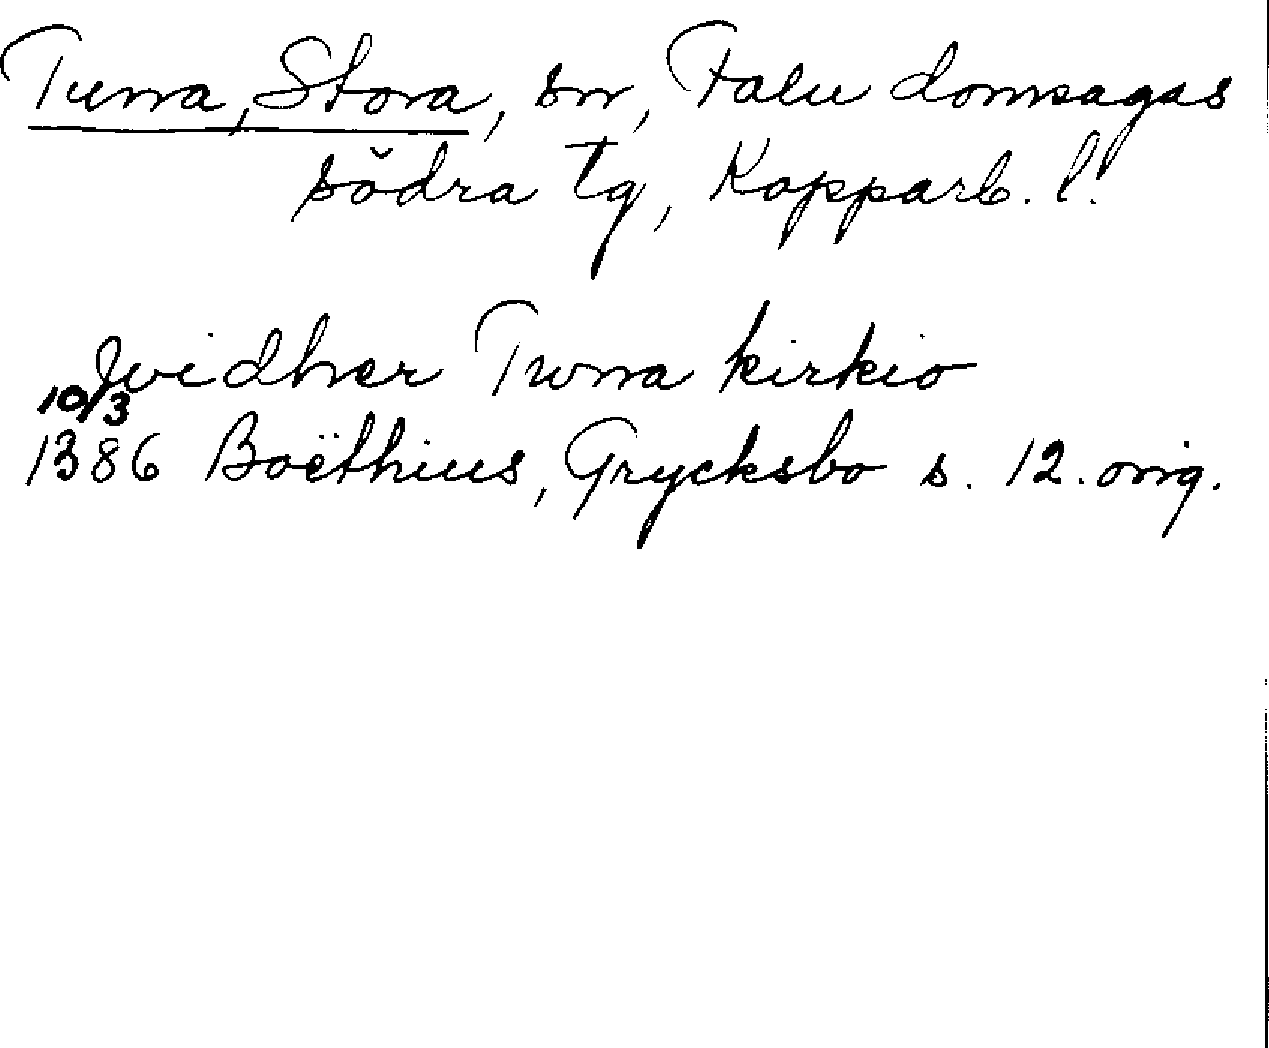 Tuna, Stora, sn, Falu domsagas
södra tg, Kopparb. l.
jvidher Twna kirkio
10/3
1386 Boëthius, Grycksbo s. 12. orig.